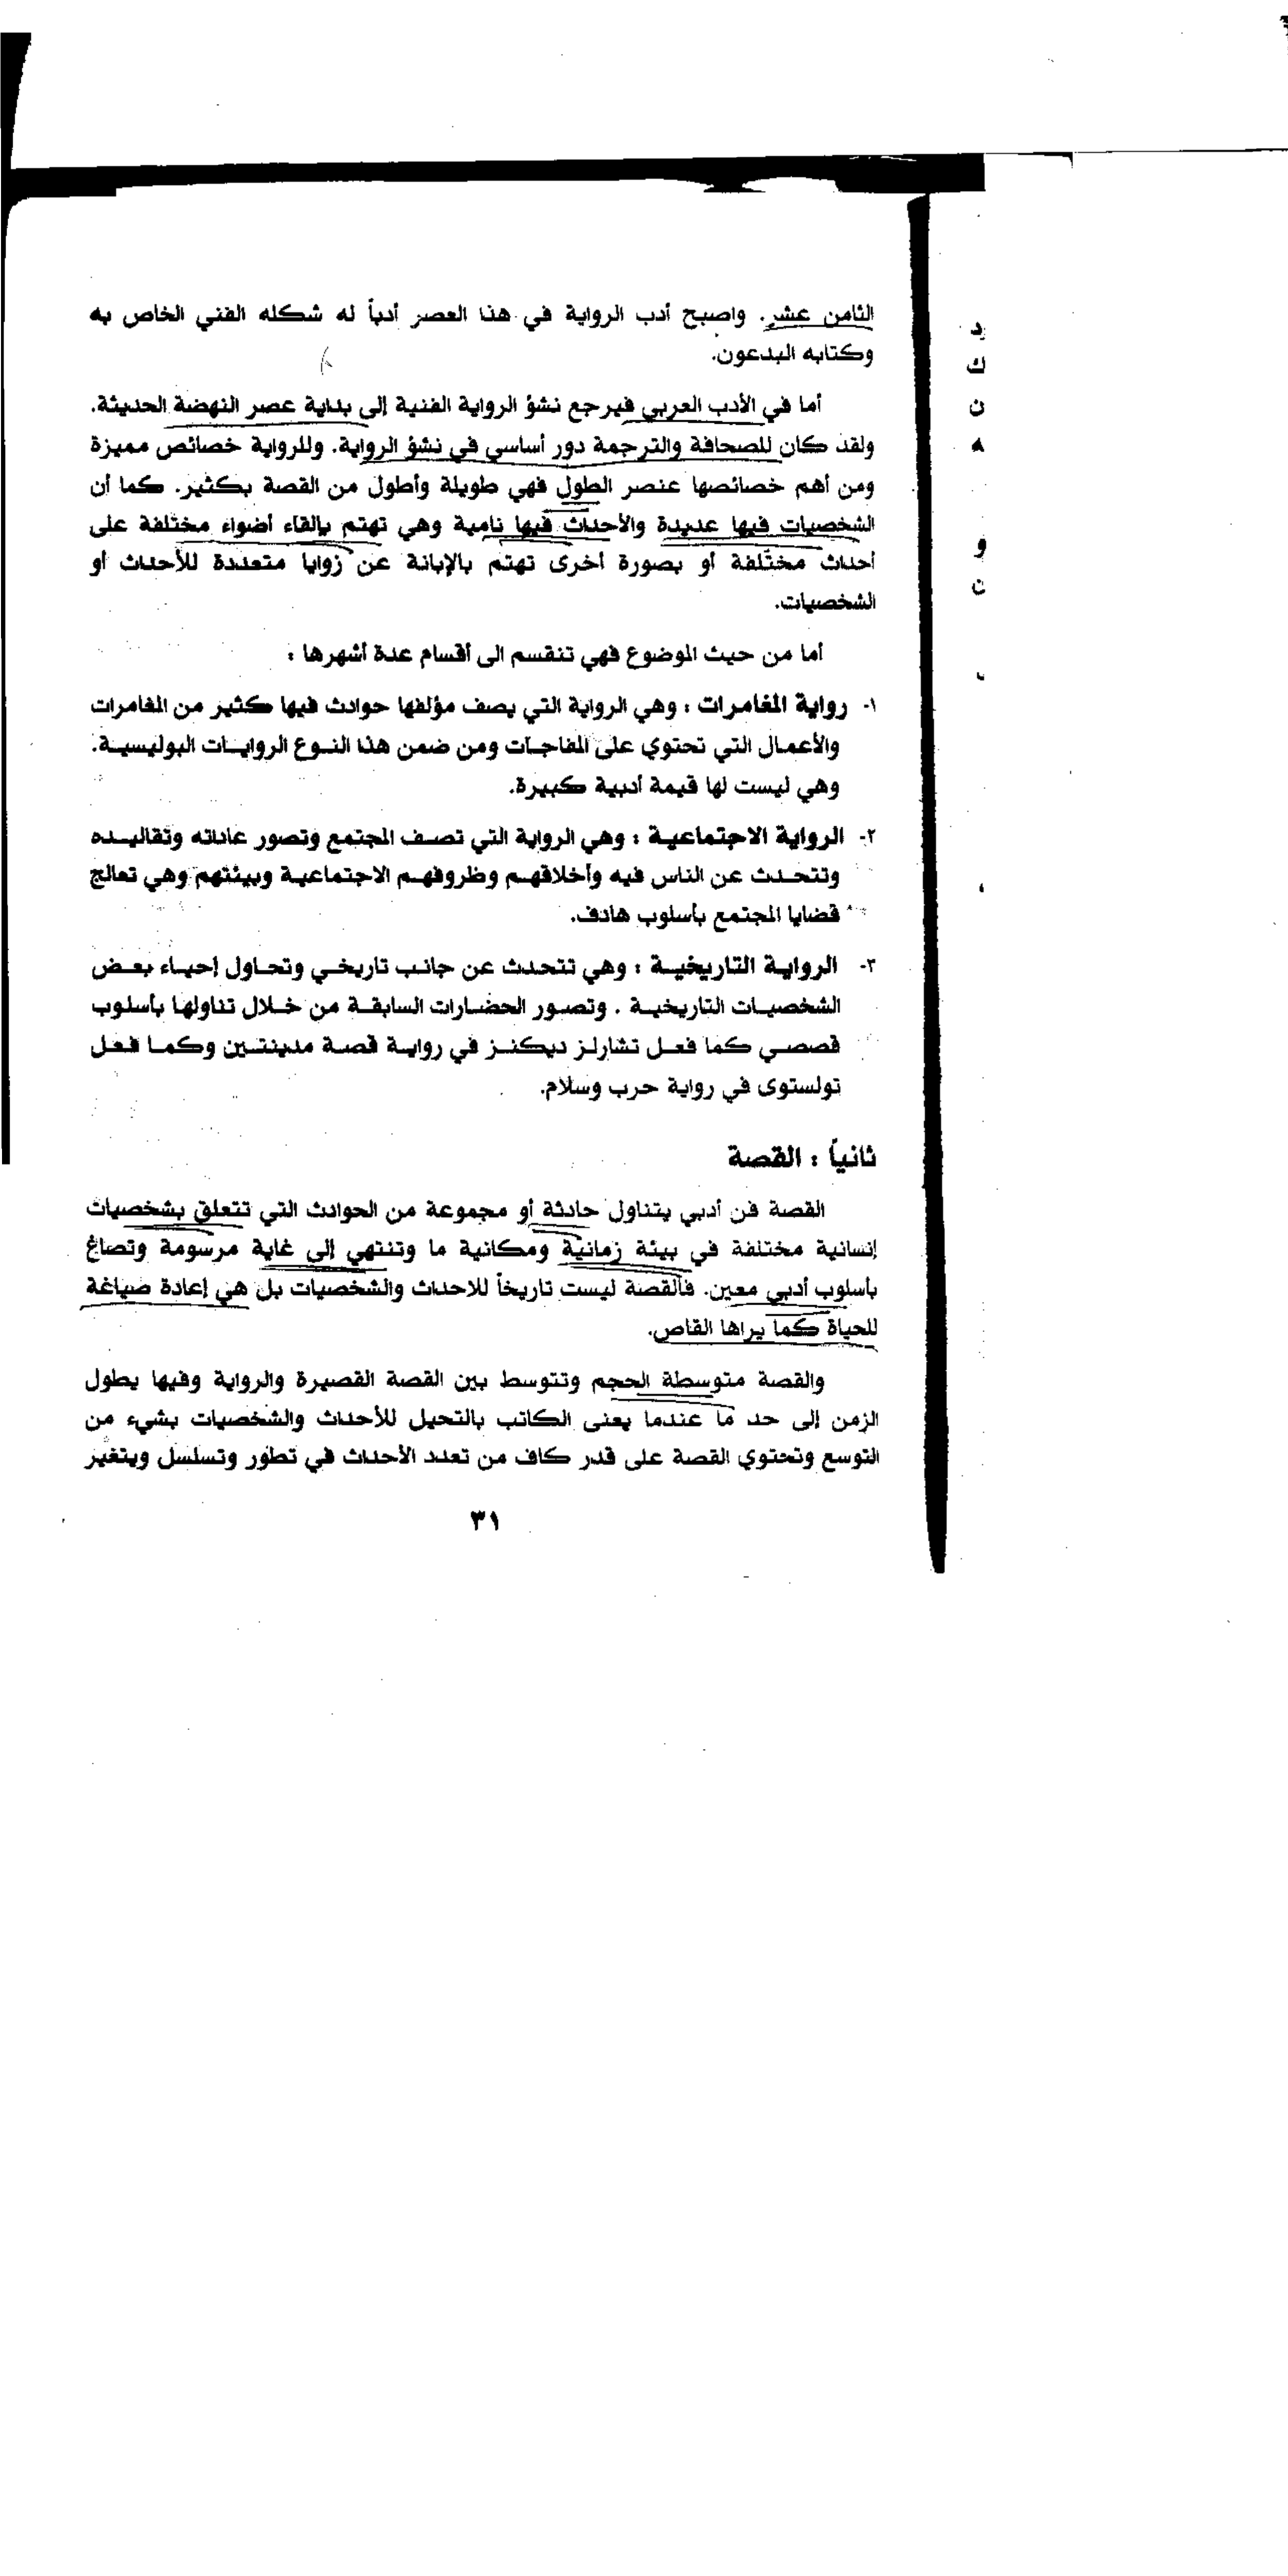 الثامن عشر. واصبح أدب الرواية في هذا العصر أدباً له شكله الفني الخاص به
وكتابه البدعون.
أما في الأدب العربي فيرجع نشؤ الرواية الفنية إلى بداية عصر النهضة الحديثة.
ولقد كان للصحافة والترجمة دور أساسي في نشؤ الرواية. وللرواية خصائص مميزة
ومن أهم خصائصها عنصر الطول فهي طويلة وأطول من القصة بكثير. كما أن
الشخصيات فيها عديدة والأحداث فيها نامية وهي تهتم بإلقاء أضواء مختلفة على
أحداث مختلفة أو بصورة أخرى تهتم بالإبانة عن زوايا متعددة للأحداث أو
الشخصيات.
أما من حيث الموضوع فهي تنقسم الى أقسام عدة أشهرها :
١- رواية المغامرات : وهي الرواية التي يصف مؤلفها حوادث فيها كثير من المغامرات
والأعمال التي تحتوي على المفاجآت ومن ضمن هذا النوع الروايات البوليسية.
وهي ليست لها قيمة أدبية كبيرة.
٢- الرواية الاجتماعية : وهي الرواية التي تصف المجتمع وتصور عاداته وتقاليده
وتتحدث عن الناس فيه وأخلاقهم وظروفهم الاجتماعية وبيئتهم وهي تعالج
قضايا المجتمع بأسلوب هادف.
٣- الرواية التاريخية : وهي تتحدث عن جانب تاريخي وتحاول إحياء بعض
الشخصيات التاريخية . وتصور الحضارات السابقة من خلال تناولها بأسلوب
قصصي كما فعل تشارلز ديكنز في رواية قصة مدينتين وكما فعل
تولستوى في رواية حرب وسلام.
ثانياً : القصة
القصة فن أدبي يتناول حادثة أو مجموعة من الحوادث التي تتعلق بشخصيات
إنسانية مختلفة في بيئة زمانية ومكانية ما وتنتهي إلى غاية مرسومة وتصاغ
بأسلوب أدبي معين. فالقصة ليست تاريخاً للاحداث والشخصيات بل هي إعادة صياغة
للحياة كما يراها القاص.
والقصة متوسطة الحجم وتتوسط بين القصة القصيرة والرواية وفيها يطول
الزمن إلى حد ما عندما يعنى الكاتب بالتحيل للأحداث والشخصيات بشيء من
التوسع وتحتوي القصة على قدر كاف من تعدد الأحداث في تطور وتسلسل ويتغير
٣١